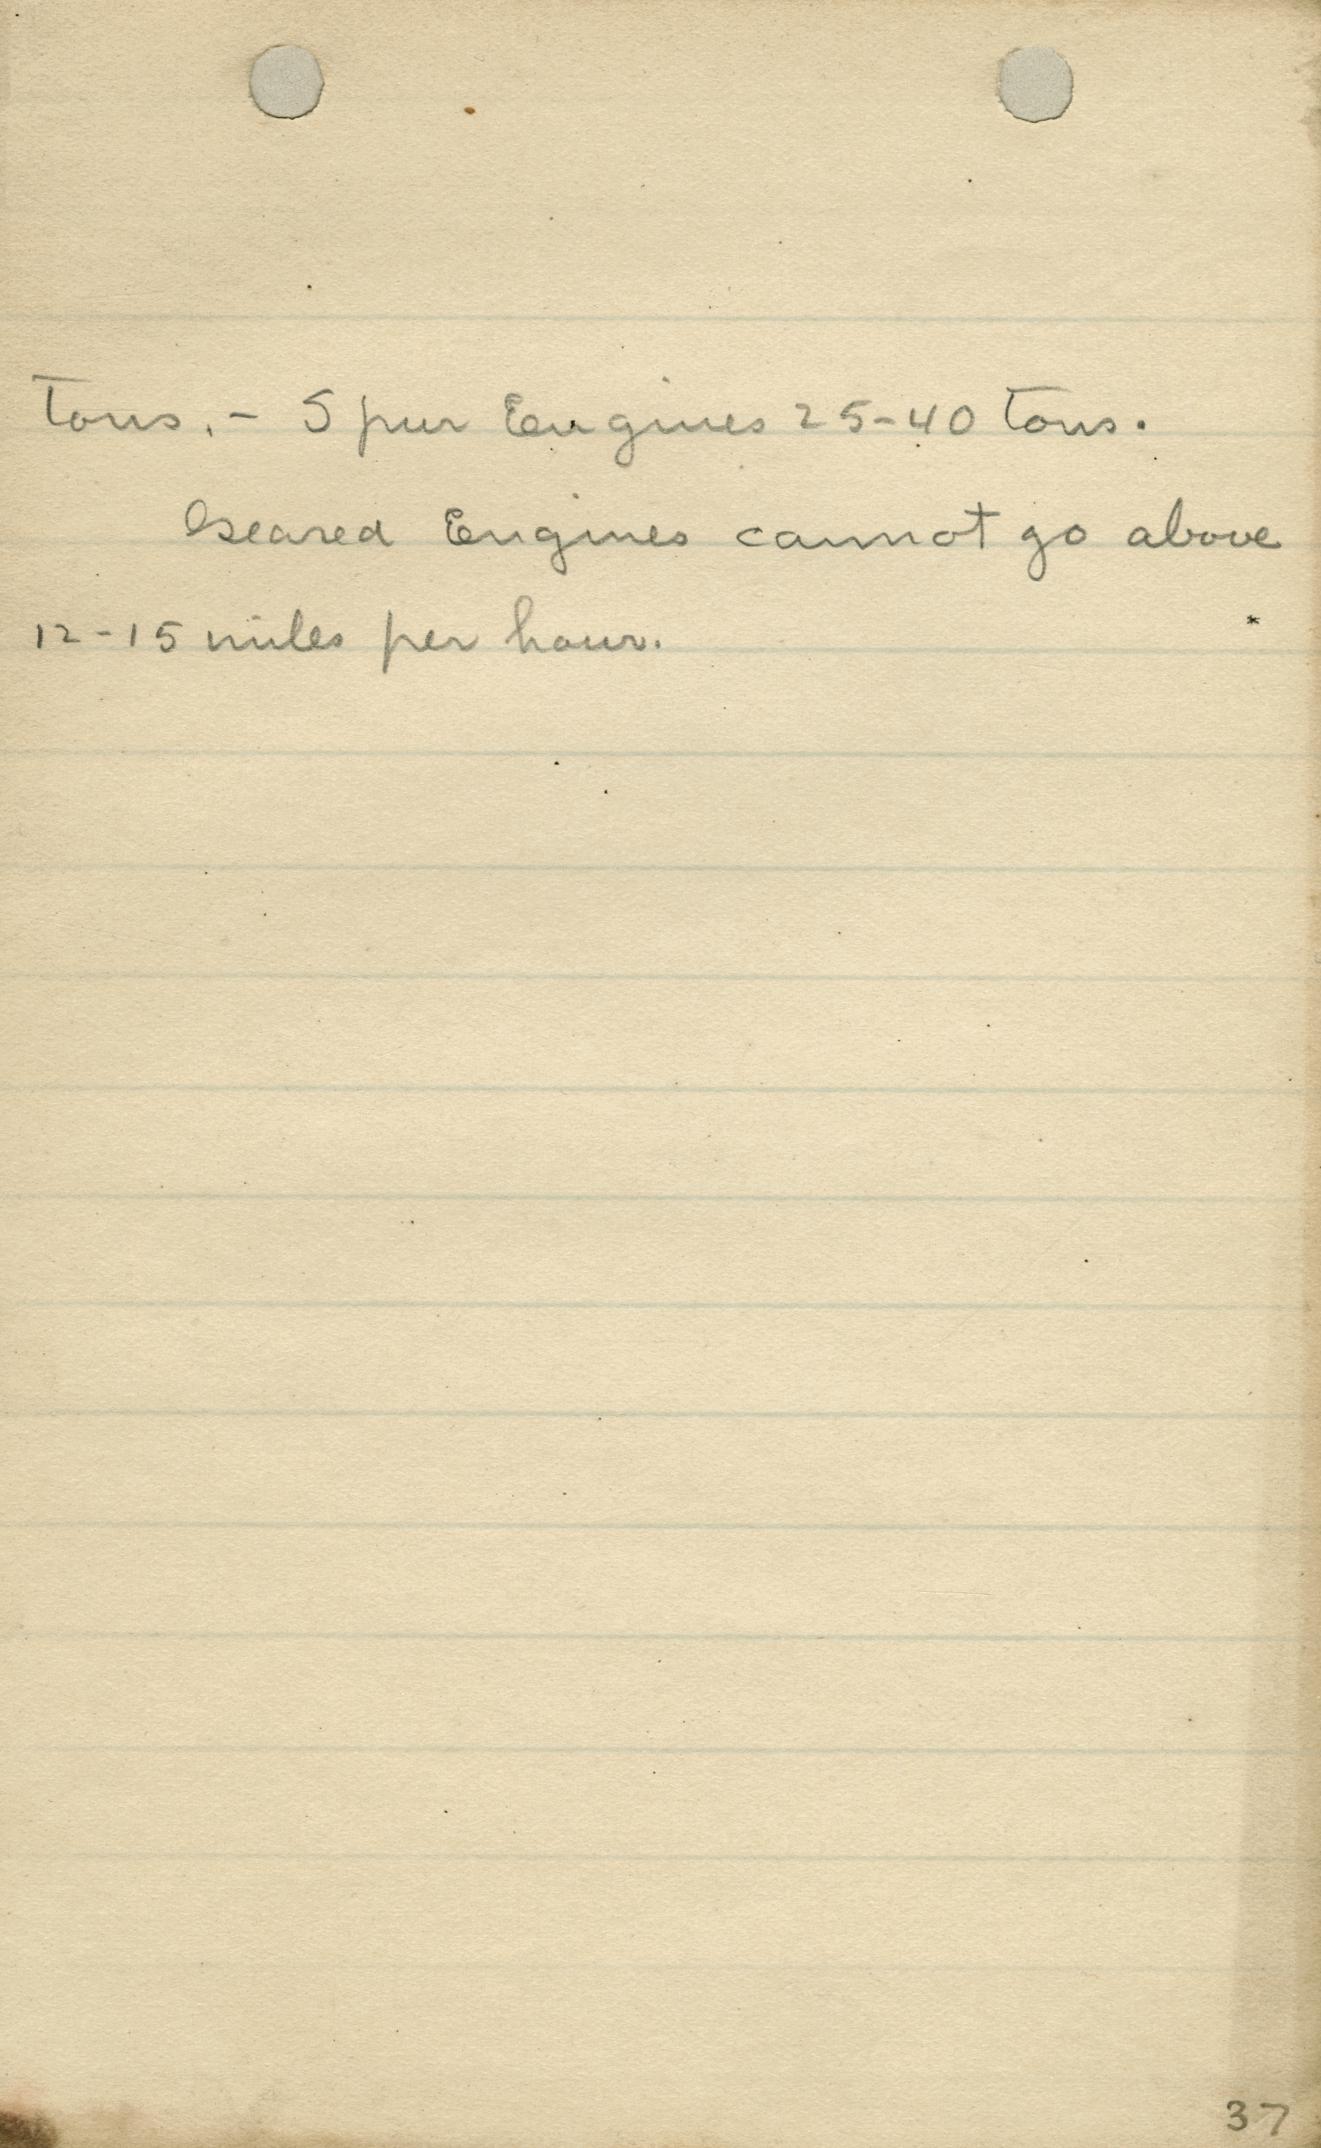 Tons. - Spur Engines 25-40 Tons.
Geared Engines cannot go above
12-15 miles per hour.
37